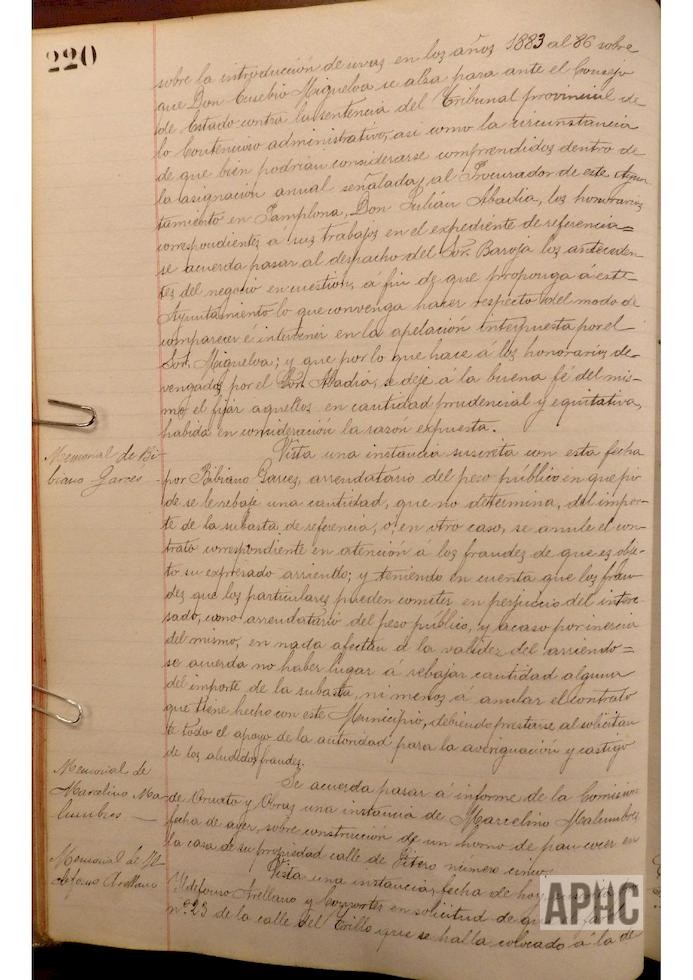 220
sobre la introducción de uvas en los años 1883 al 86 sobre
que Don Eusebio Miguelva se alza para ante el Consejo
de Estado contra la sentencia del Tribunal provincial de
lo Contencioso administrativo, asi como la circunstancia
de que bien podrían considerarse comprendidos dentro de
la asignación anual señalada al Procurador de este Ayun-
tamiento en Pamplona, Don Julián Abadia, los honorarios
correspondientes á sus trabajos en el expediente de referencia=
se acuerda pasar al despacho del Sor. Baroja los anteceden-
tes del negocio en cuestion, á fin de que proponga á este
Ayuntamiento lo que convenga hacer respecto del modo de
comparecer é intervenir en la apelación interpuesta por el
Sor. Miguelva; y que por lo que hace á los honorarios de-
vengados por el Sor. Abadia, se deje á la buena fé del mis-
mo el fijar aquellos en cantidad prudencial y equitativa,
habida en consideración la razón expuesta.
Memorial de Bi-
biano Garces -
Vista una instancia suscrita con esta fecha
por Bibiano Garces, arrendatario del peso público en que pi-
de se le rebaje una cantidad, que no determina, del impor-
te de la subasta de referencia, o, en otro caso, se anule el con-
trato correspondiente en atención á los fraudes de que es obje-
to su expresado arriendo; y teniendo en cuenta que los frau-
des que los particulares pueden cometer en perjuicio del intere-
sado, como arrendatario del peso publico, y acaso por inercia
del mismo, en nada afectan á la validez del arriendo=
se acuerda no haber lugar á rebajar cantidad alguna
del importe de la subasta, ni menos á anular el contrato
que tiene hecho con este Municipio, debiendo prestarse al solicitan
te todo el apoyo de la autoridad para la averiguación y castigo
de los aludidos fraudes.
Memorial de
Marcelino Ma-
lumbres —
Se acuerda pasar á informe de la Comision
de Ornato y Obras una instancia de Marcelino Malumbres,
fecha de ayer, sobre construcción de un horno de pan cocer en
la casa de su propiedad calle de Fitero número cinco.
Memorial de Il-
defonso Arellano
Vista una instancia, fecha de hoy,
Ildefonso Arellano y Consortes en solicitud de que
nº 23 de la calle del Trillo que se halla colocado á la de
APHC